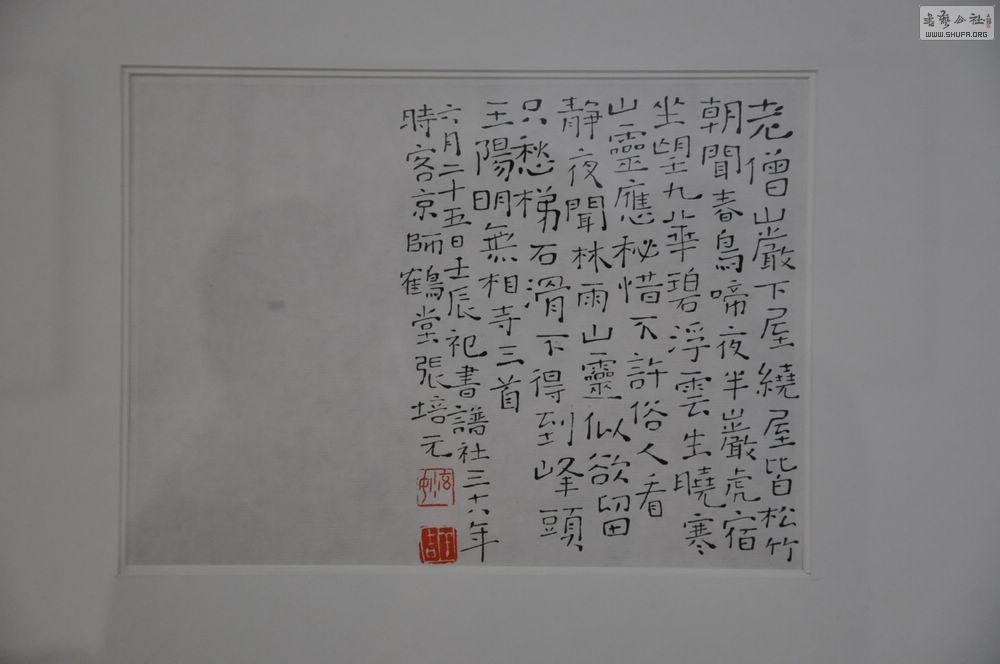 老僧山巖下屋繞屋皆松竹
朝聞春鳥啼夜半巖虎宿
坐望九華碧浮雲生曉寒
山靈應秘惜不許俗人看
靜夜聞林雨山靈似欲留
只愁梯石滑下得到峰頭
王陽明無相寺三首
六月二十五日壬辰祀書譜社三十六年
時客京師鶴堂張培元
書藝公社
WWW.SHUFA.ORG